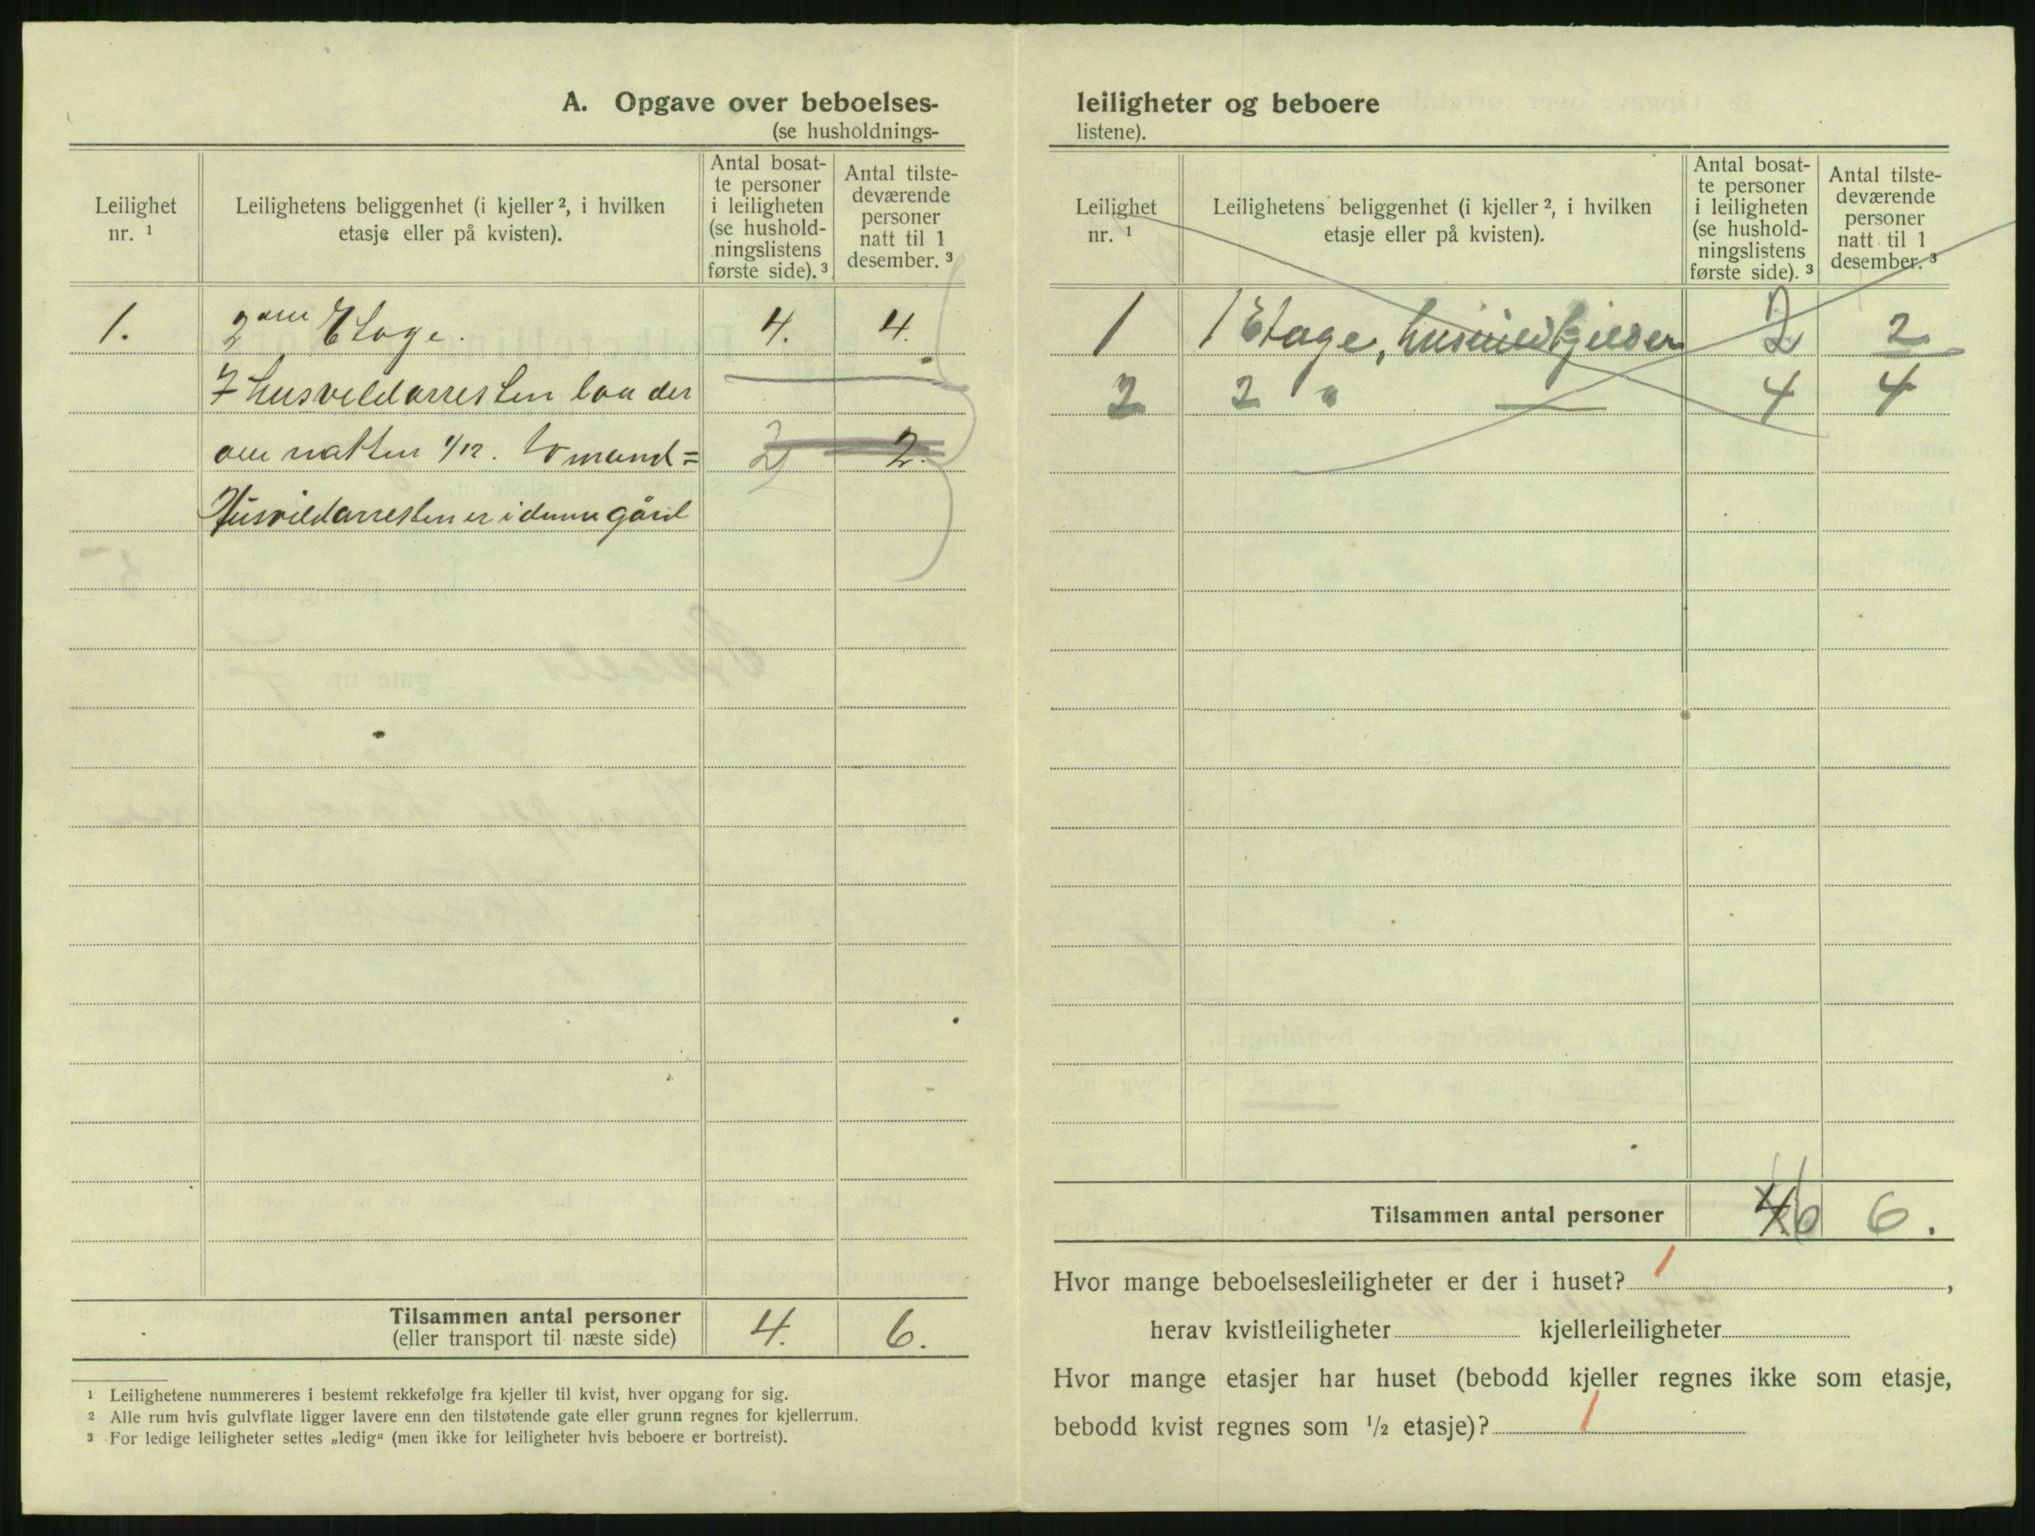 A. Opgave over beboelses-
(se husholdnings-
Leilighet nr. ¹
Leilighetens beliggenhet (i kjeller ², i hvilken etasje eller på kvisten).
Antal bosat-te personer i leiligheten (se hushold-ningslistens første side). ³
Antal tilste-deværende personer natt til 1 desember. ³
1. 2 Etage. 4. 4.
I husvildarresten laa der
om natten 1/12. to mand= 2 2.
Husvildarresten er i denne gård
Tilsammen antal personer 4. 6.
(eller transport til næste side)
¹ Leilighetene nummereres i bestemt rekkefølge fra kjeller til kvist, hver opgang for sig.
² Alle rum hvis gulvflate ligger lavere enn den tilstøtende gate eller grunn regnes for kjellerrum.
³ For ledige leiligheter settes „ledig“ (men ikke for leiligheter hvis beboere er bortreist).
leiligheter og beboere
listene).
Leilighet nr. ¹
Leilighetens beliggenhet (i kjeller ², i hvilken etasje eller på kvisten).
Antal bosat-te personer i leiligheten (se hushold-ningslistens første side). ³
Antal tilste-deværende personer natt til 1 desember. ³
1 1 Etage, 2 2
2 2 " — 4 4
Tilsammen antal personer 6 6.
Hvor mange beboelsesleiligheter er der i huset? 1,
herav kvistleiligheter kjellerleiligheter
Hvor mange etasjer har huset (bebodd kjeller regnes ikke som etasje,
bebodd kvist regnes som ½ etasje)? 1